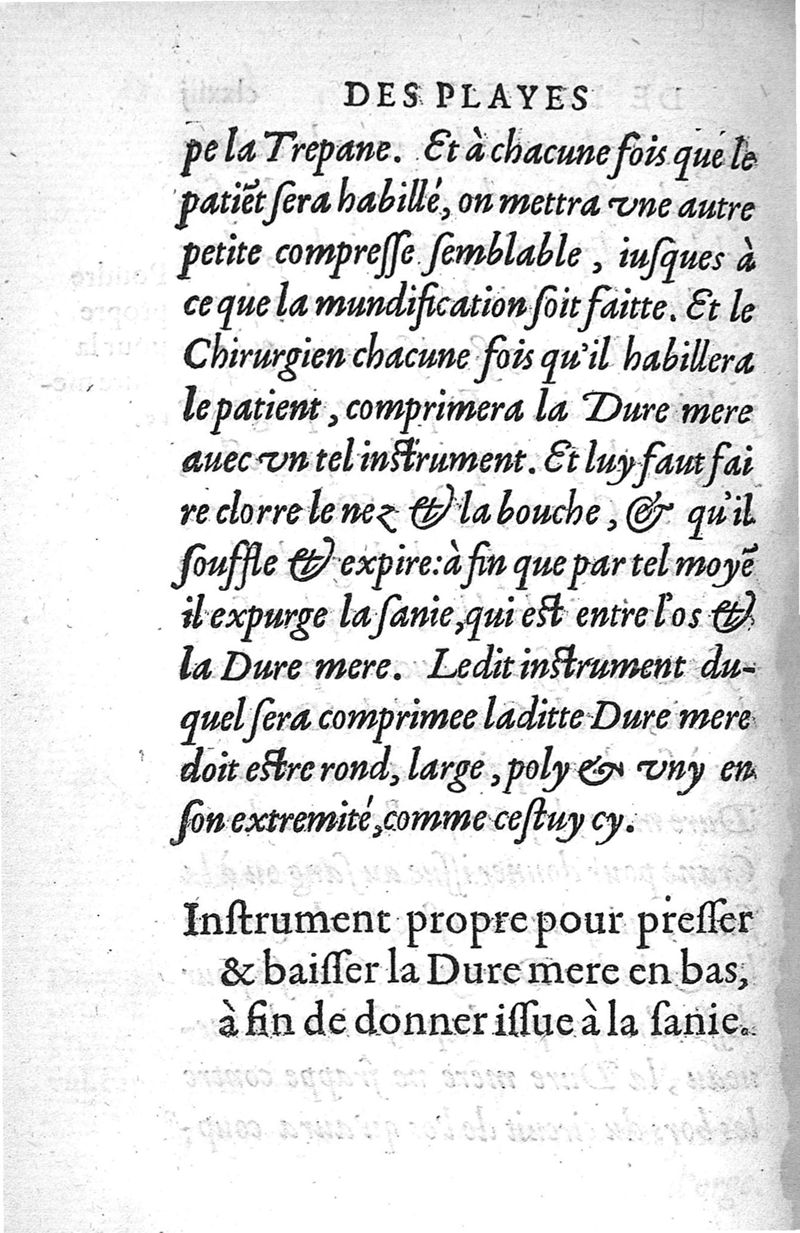 DES PLAYES
pe la Trepane. Et à chacune fois que le
patiẽt sera habillé, on mettra vne autre
petite compresse semblable, iusques à
ce que la mundification soit faitte. Et le
Chirurgien chacune fois qu'il habillera
le patient, comprimera la Dure mere
auec vn tel instrument. Et luy faut fai
re clorre le nez & la bouche, & qu'il
souffle & expire: à fin que par tel moyẽ
il expurge la sanie, qui est entre l'os &
la Dure mere. Ledit instrument du-
quel sera comprimee laditte Dure mere
doit estre rond, large, poly & vny en
son extremité, comme cestuy cy.
Instrument propre pour presser
& baisser la Dure mere en bas,
à fin de donner issue à la sanie.